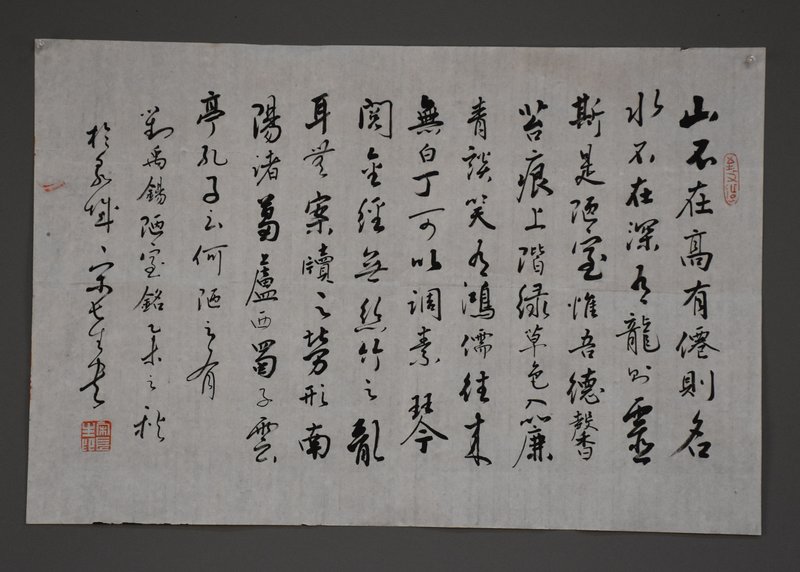 山不在高有僊則名
水不在深有龍則靈
斯是陋室惟吾德馨
苔痕上階緑草色入簾
青談笑有鴻儒往来
無白丁可以調素琴
閲金經無絲竹之亂
耳無案牘之勞形南
陽諸葛蘆西蜀子雲
亭孔子云何陋之有
劉禹錫陋室銘乙未之秋
於京城宋長生书